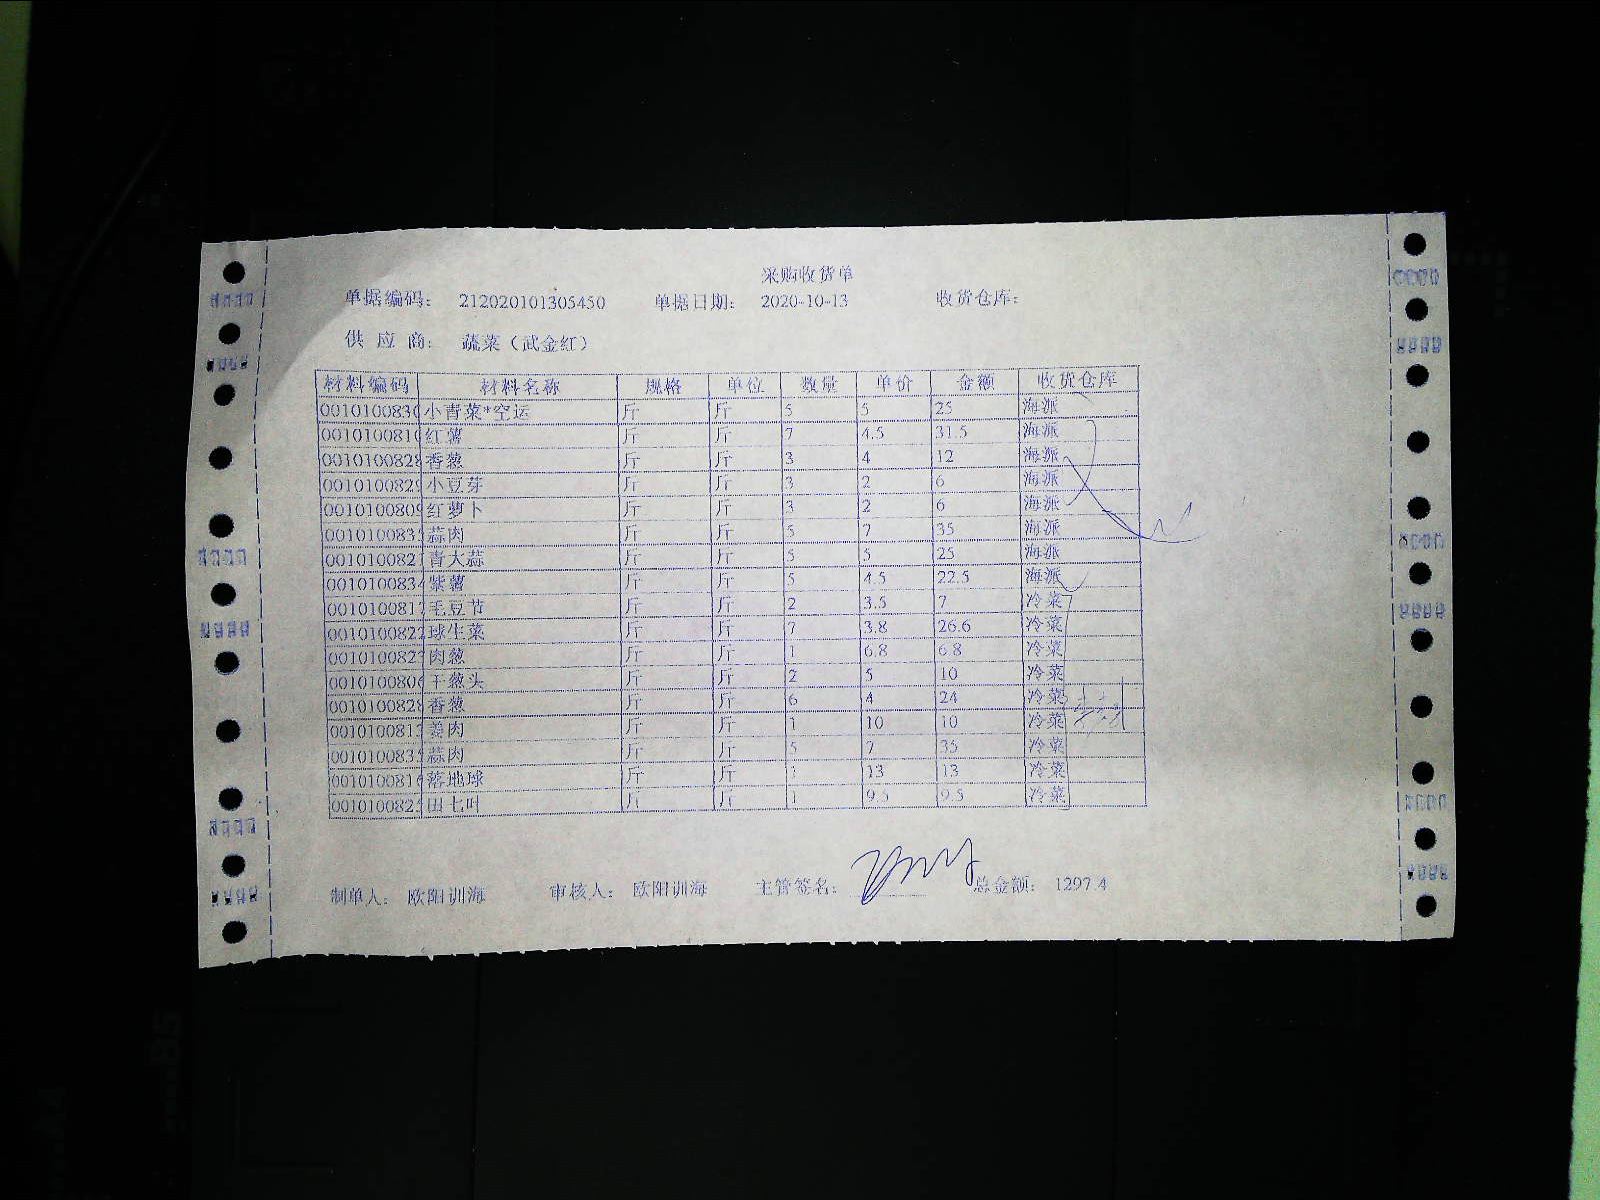 采购收货单
单据编码： 212020101305450 单据日期： 2020-10-13 收货仓库：
供应商： 蔬菜（武金红）
材料编码 材料名称 规格 单位 数量 单价 金额 收货仓库
0010100830 小青菜*空运 斤 斤 5 5 25 海派
0010100810 红薯 斤 斤 7 4.5 31.5 海派
0010100828 香葱 斤 斤 3 4 12 海派
0010100829 小豆芽 斤 斤 3 2 6 海派
0010100809 红萝卜 斤 斤 3 2 6 海派
001010083 蒜肉 斤 斤 5 7 35 海派
0010100821 青大蒜 斤 斤 5 5 25 海派
0010100834 紫薯 斤 斤 5 4.5 22.5 海派
0010100817 毛豆节 斤 斤 2 3.5 7 冷菜
0010100822 球生菜 斤 斤 7 3.8 26.6 冷菜
001010082 肉葱 斤 斤 1 6.8 6.8 冷菜
0010100806 干葱头 斤 斤 2 5 10 冷菜
0010100828 香葱 斤 斤 6 4 24 冷菜
001010081 姜肉 斤 斤 1 10 10 冷菜
001010083 蒜肉 斤 斤 5 7 35 冷菜
0010100816 落地球 斤 斤 1 13 13 冷菜
001010082 田七叶 斤 斤 1 9.5 9.5 冷菜
制单人： 欧阳训海 审核人： 欧阳训海 主管签名： 总金额： 1297.4